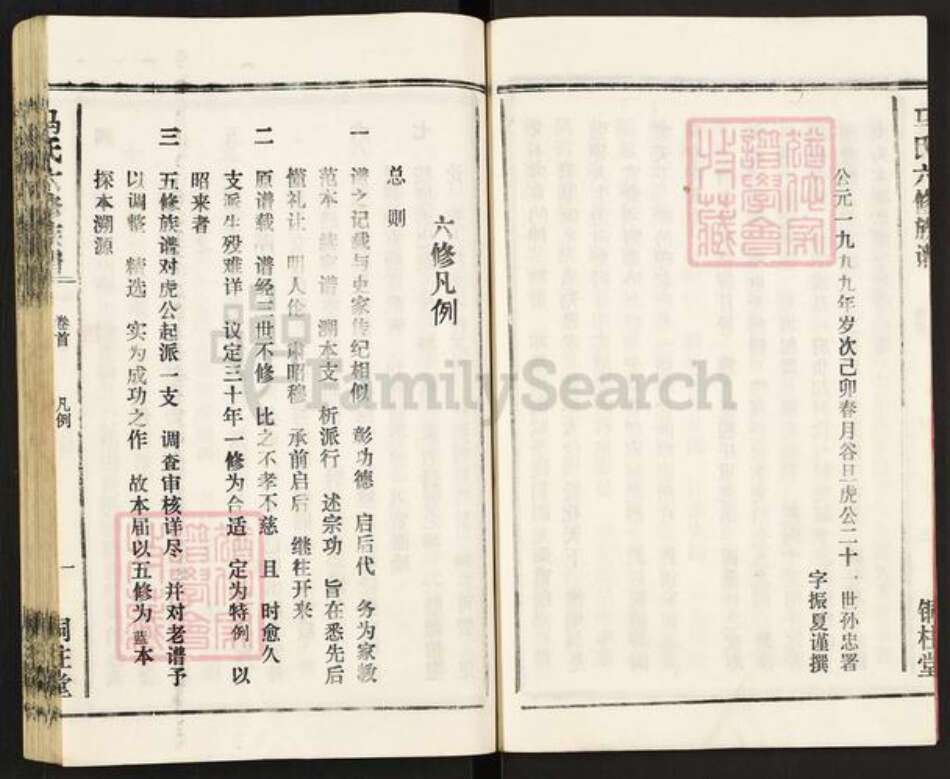 马氏六修族谱
铜柱堂
公元一九九九年岁次己卯春月谷旦虎公二十一世孙忠署
字振夏谨撰
六修凡例
总则
一 谱之记载与史家传纪相似 彰功德 启后代 务为家教
范本 族宗谱 溯本支 析派行 述宗功 旨在悉先后
懂礼让 明人伦 肃昭穆 承前启后 继往开来
二 原谱载 谱经三世不修 比之不孝不慈 且 时愈久
支派生殁难详 议定三十年一修为合适 定为特例 以
昭来者
三 五修族谱对虎公起派一支 调查审核详尽 并对老谱予
以调整 精选 实为成功之作 故本届以五修为蓝本
探本溯源
马氏六修族谱 卷首 凡例 一 铜柱堂
FamilySearch
谱学会
收藏
谱学会
收藏